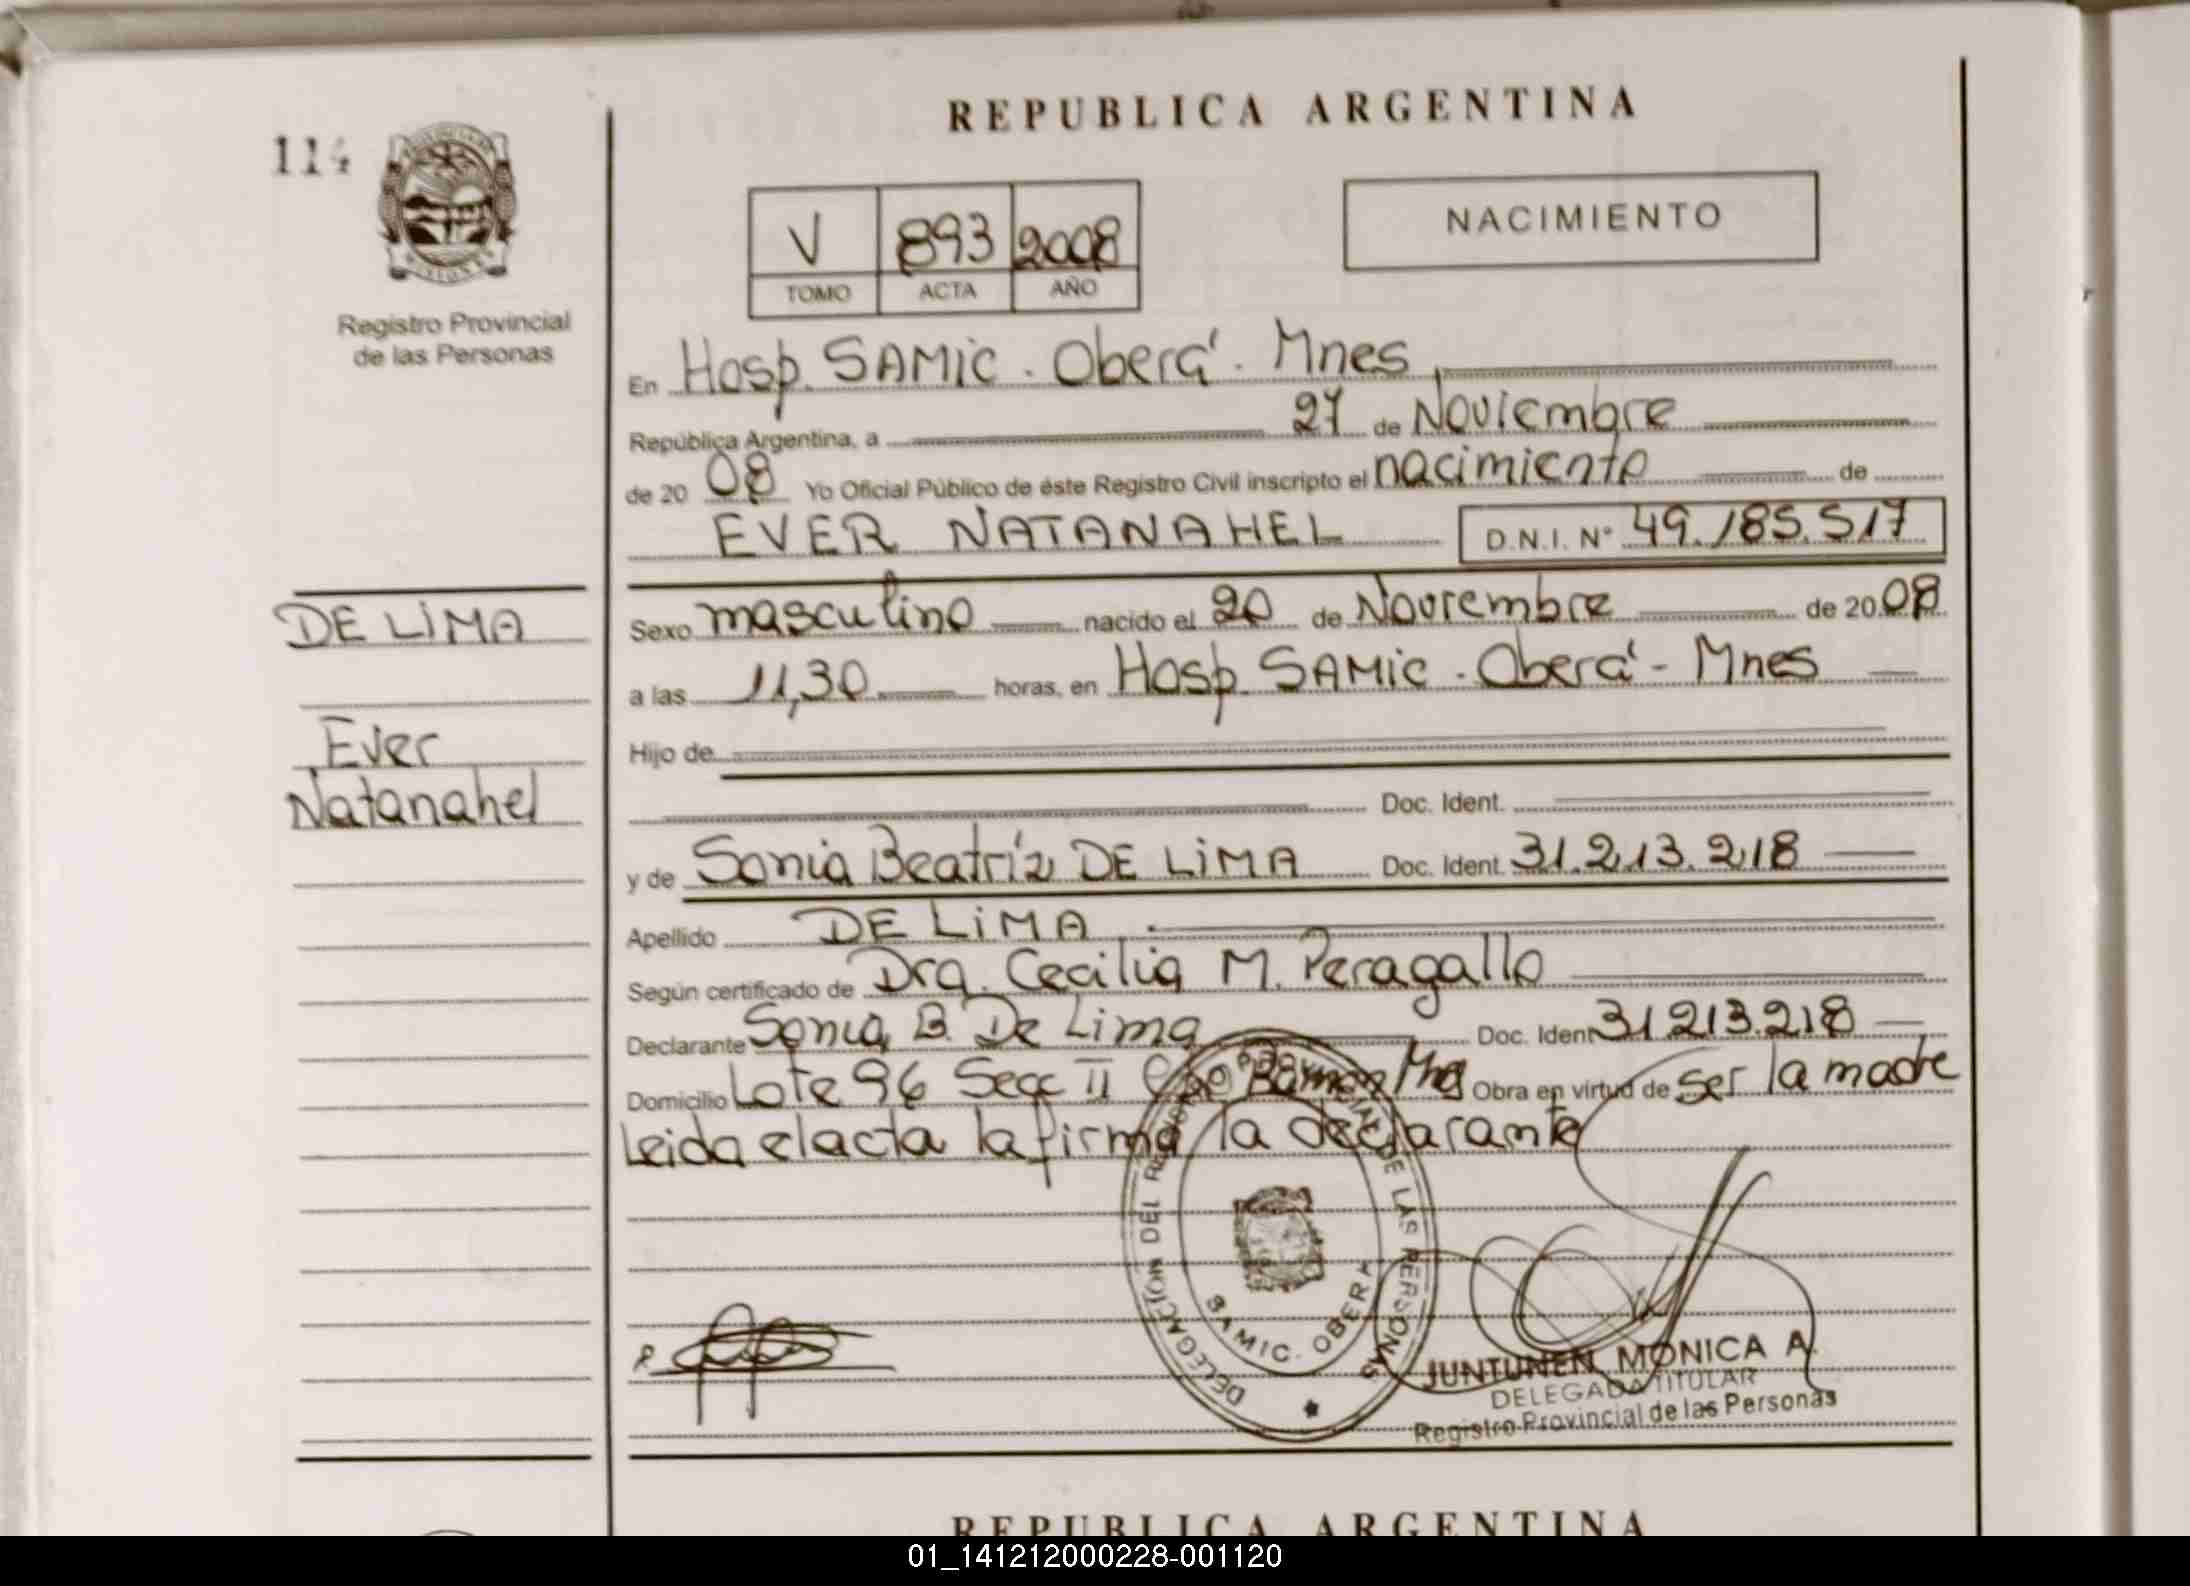 REPUBLICA ARGENTINA
114
NACIMIENTO
V 893 2008
TOMO ACTA AÑO
Registro Provincial
de las Personas
En Hosp. SAMIC - Oberá - Mnes
República Argentina, a 27 de Noviembre
de 2008 Yo Oficial Público de éste Registro Civil inscripto el nacimiento de
EVER NATANAHEL D.N.I. N° 49.185.517
DE LIMA
Ever
Natanahel
Sexo masculino nacido el 20 de Noviembre de 2008
a las 11,30 horas, en Hosp. SAMIC - Oberá - Mnes
Hijo de
Doc. Ident.
y de Sonia Beatríz DE LIMA Doc. Ident. 31.213.218
Apellido DE LIMA
Según certificado de Dra. Cecilia M. Peragallo
Declarante Sonia B. De Lima Doc. Ident 31213.218
Domicilio Lote 96 Secc II Ramon Mnes Obra en virtud de ser la madre
Leida el acta la firma la declarante
DELEGACIÓN DEL REGISTRO PROVINCIAL DE LAS PERSONAS
SAMIC. OBERA
JUNTUNEN, MONICA A.
DELEGADA TITULAR
Registro Provincial de las Personas
REPUBLICA ARGENTINA
01_141212000228-001120